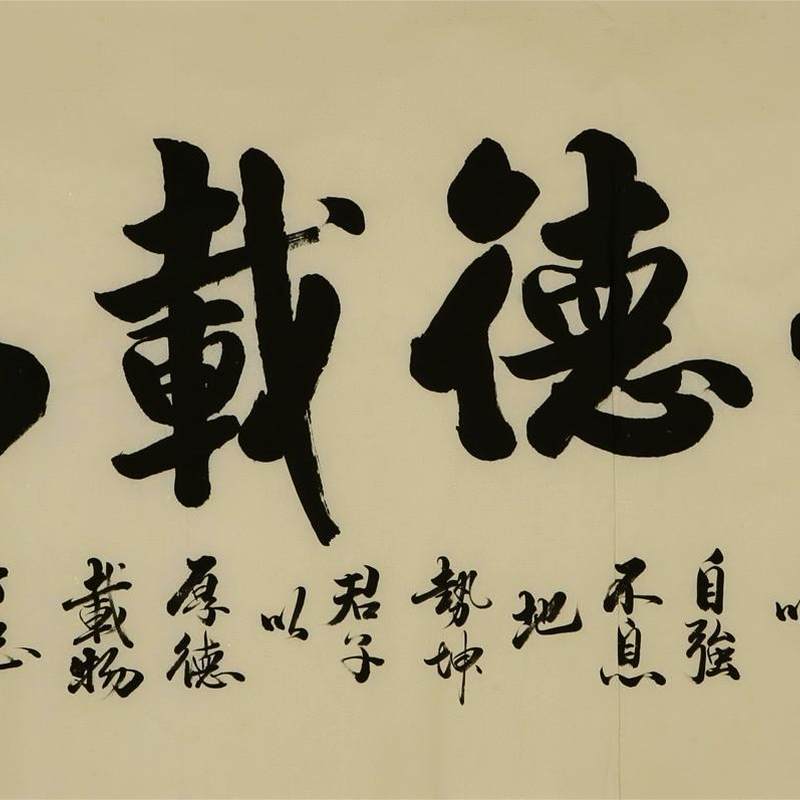 德載
自強
不息
地
勢坤
君子
以
厚德
載物